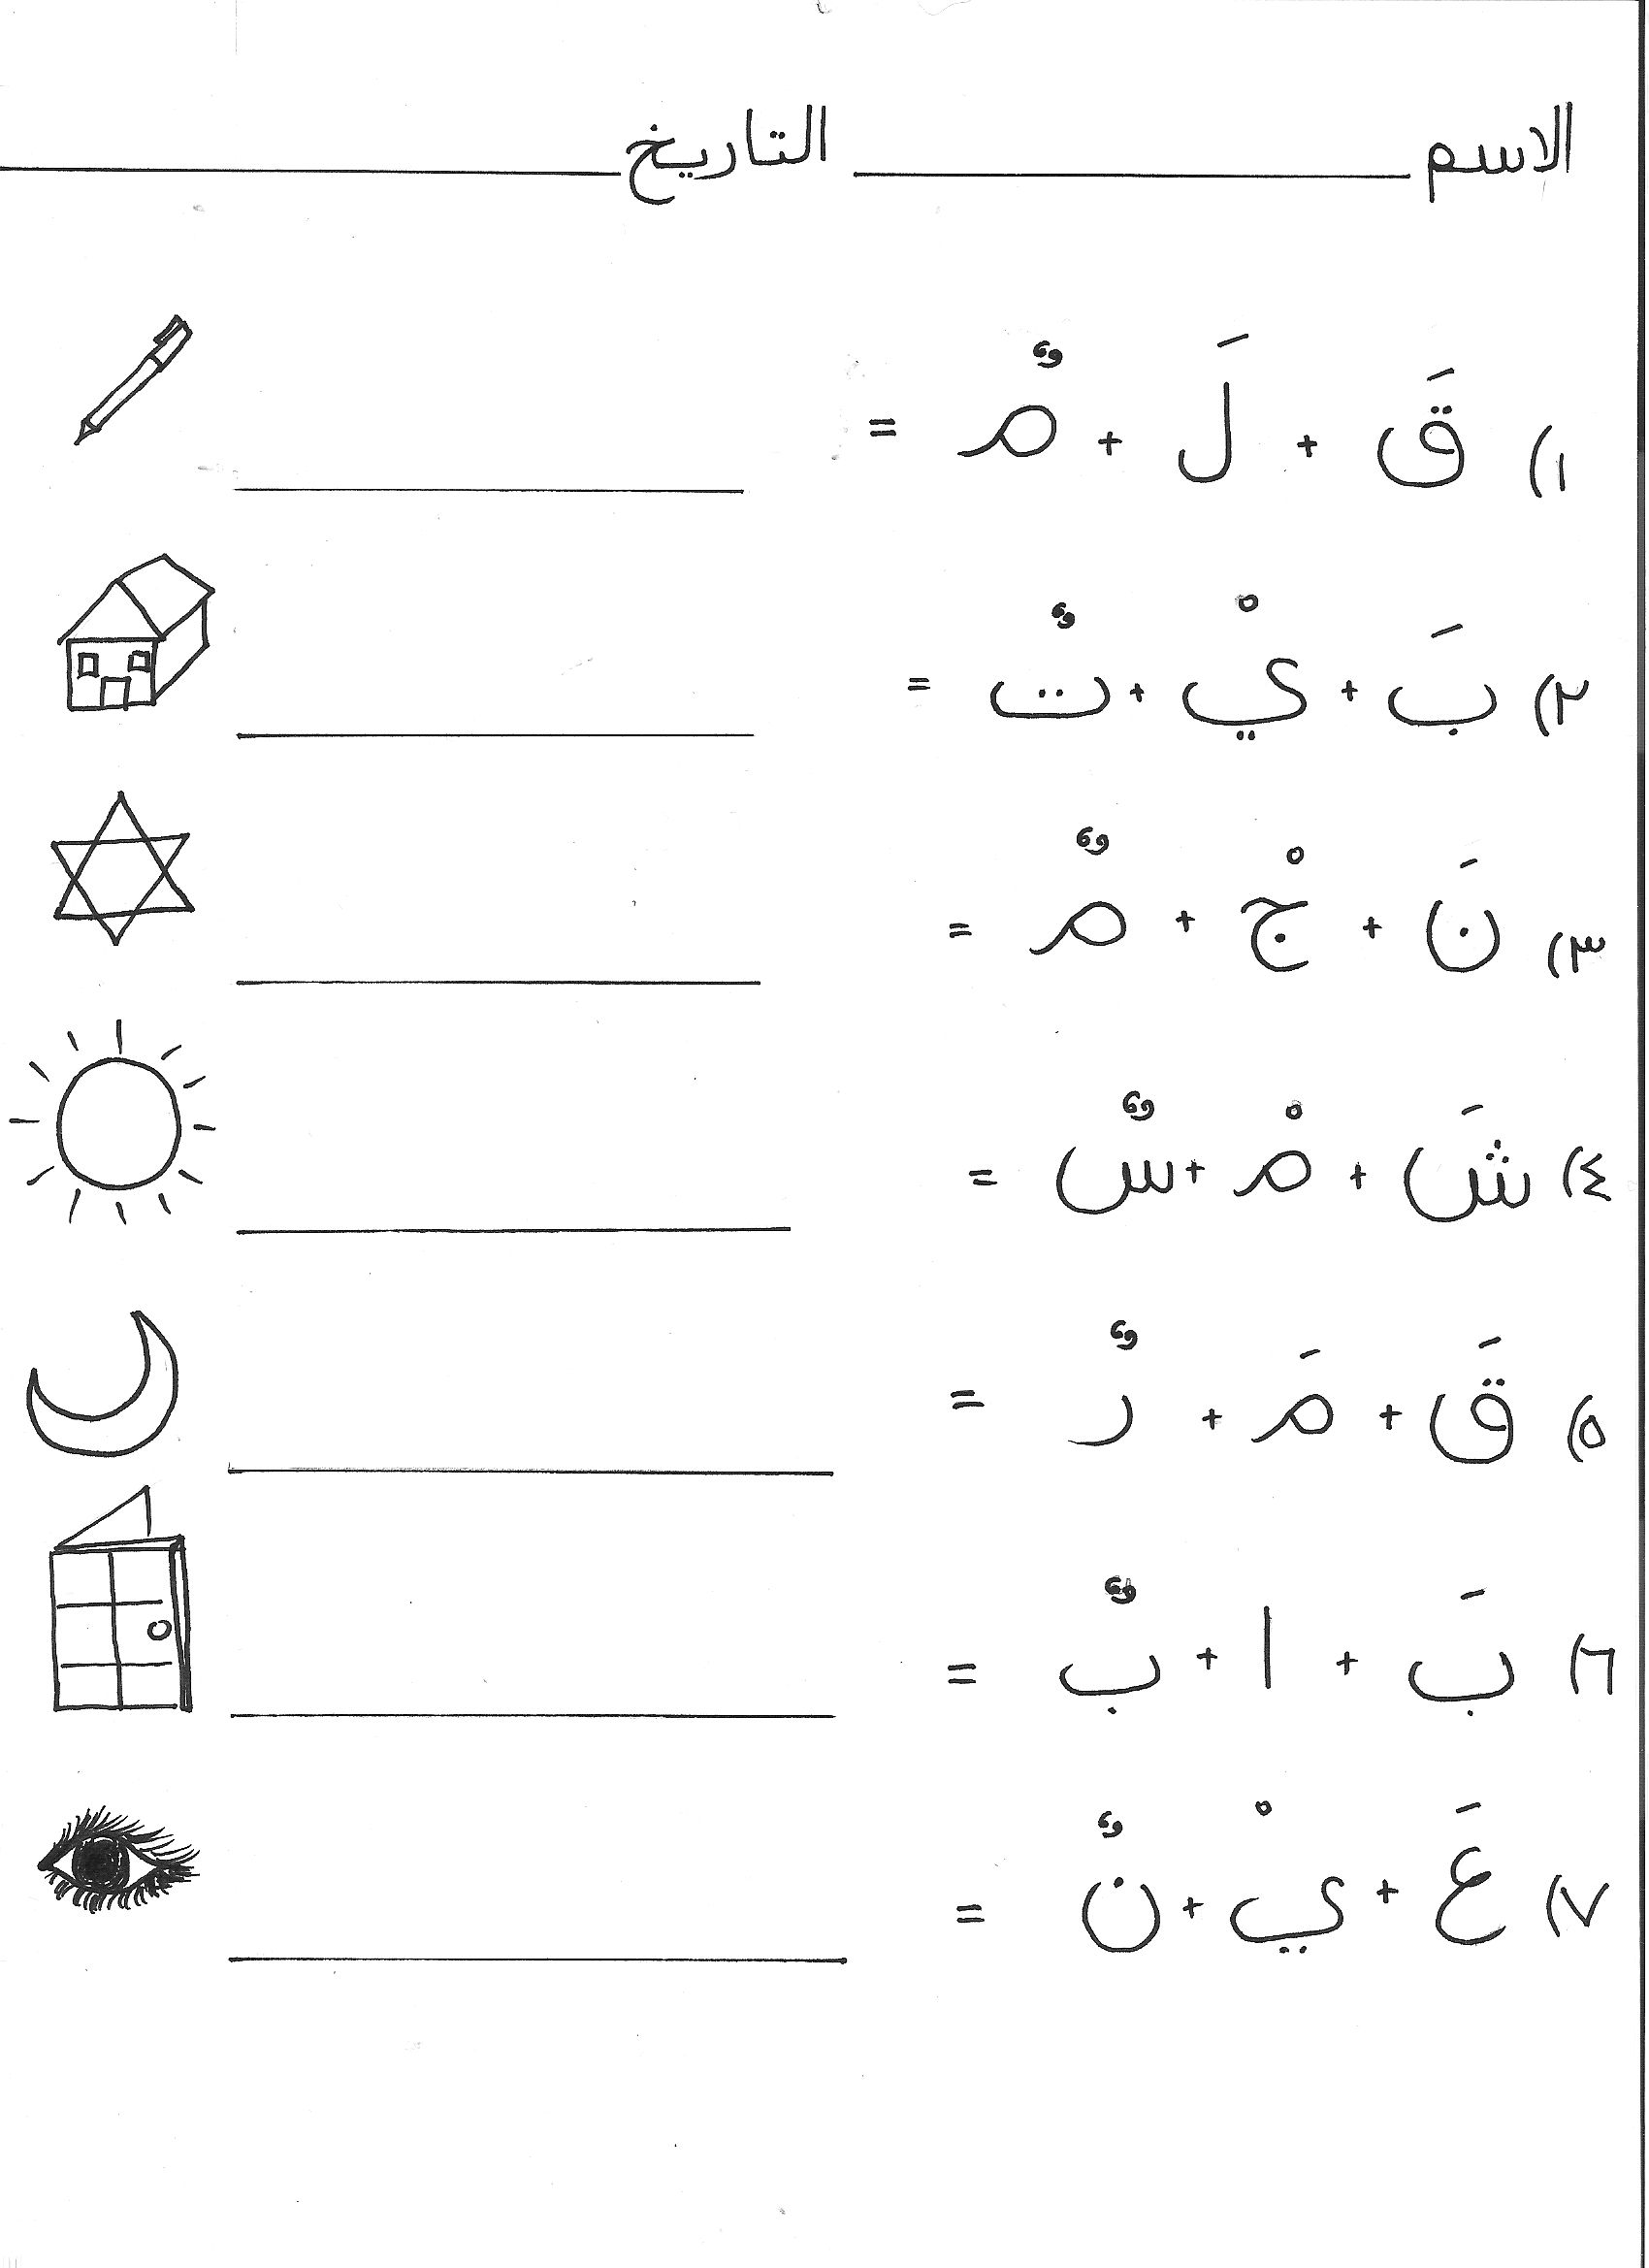 الاسم ________ التاريخ ________
١) قَ + لَ + مٌ =
٢) بَ + يْ + تٌ =
٣) نَ + جْ + مٌ =
٤) شَ + مْ + سٌ =
٥) قَ + مَ + رٌ =
٦) بَ + ا + بٌ =
٧) عَ + يْ + نٌ =